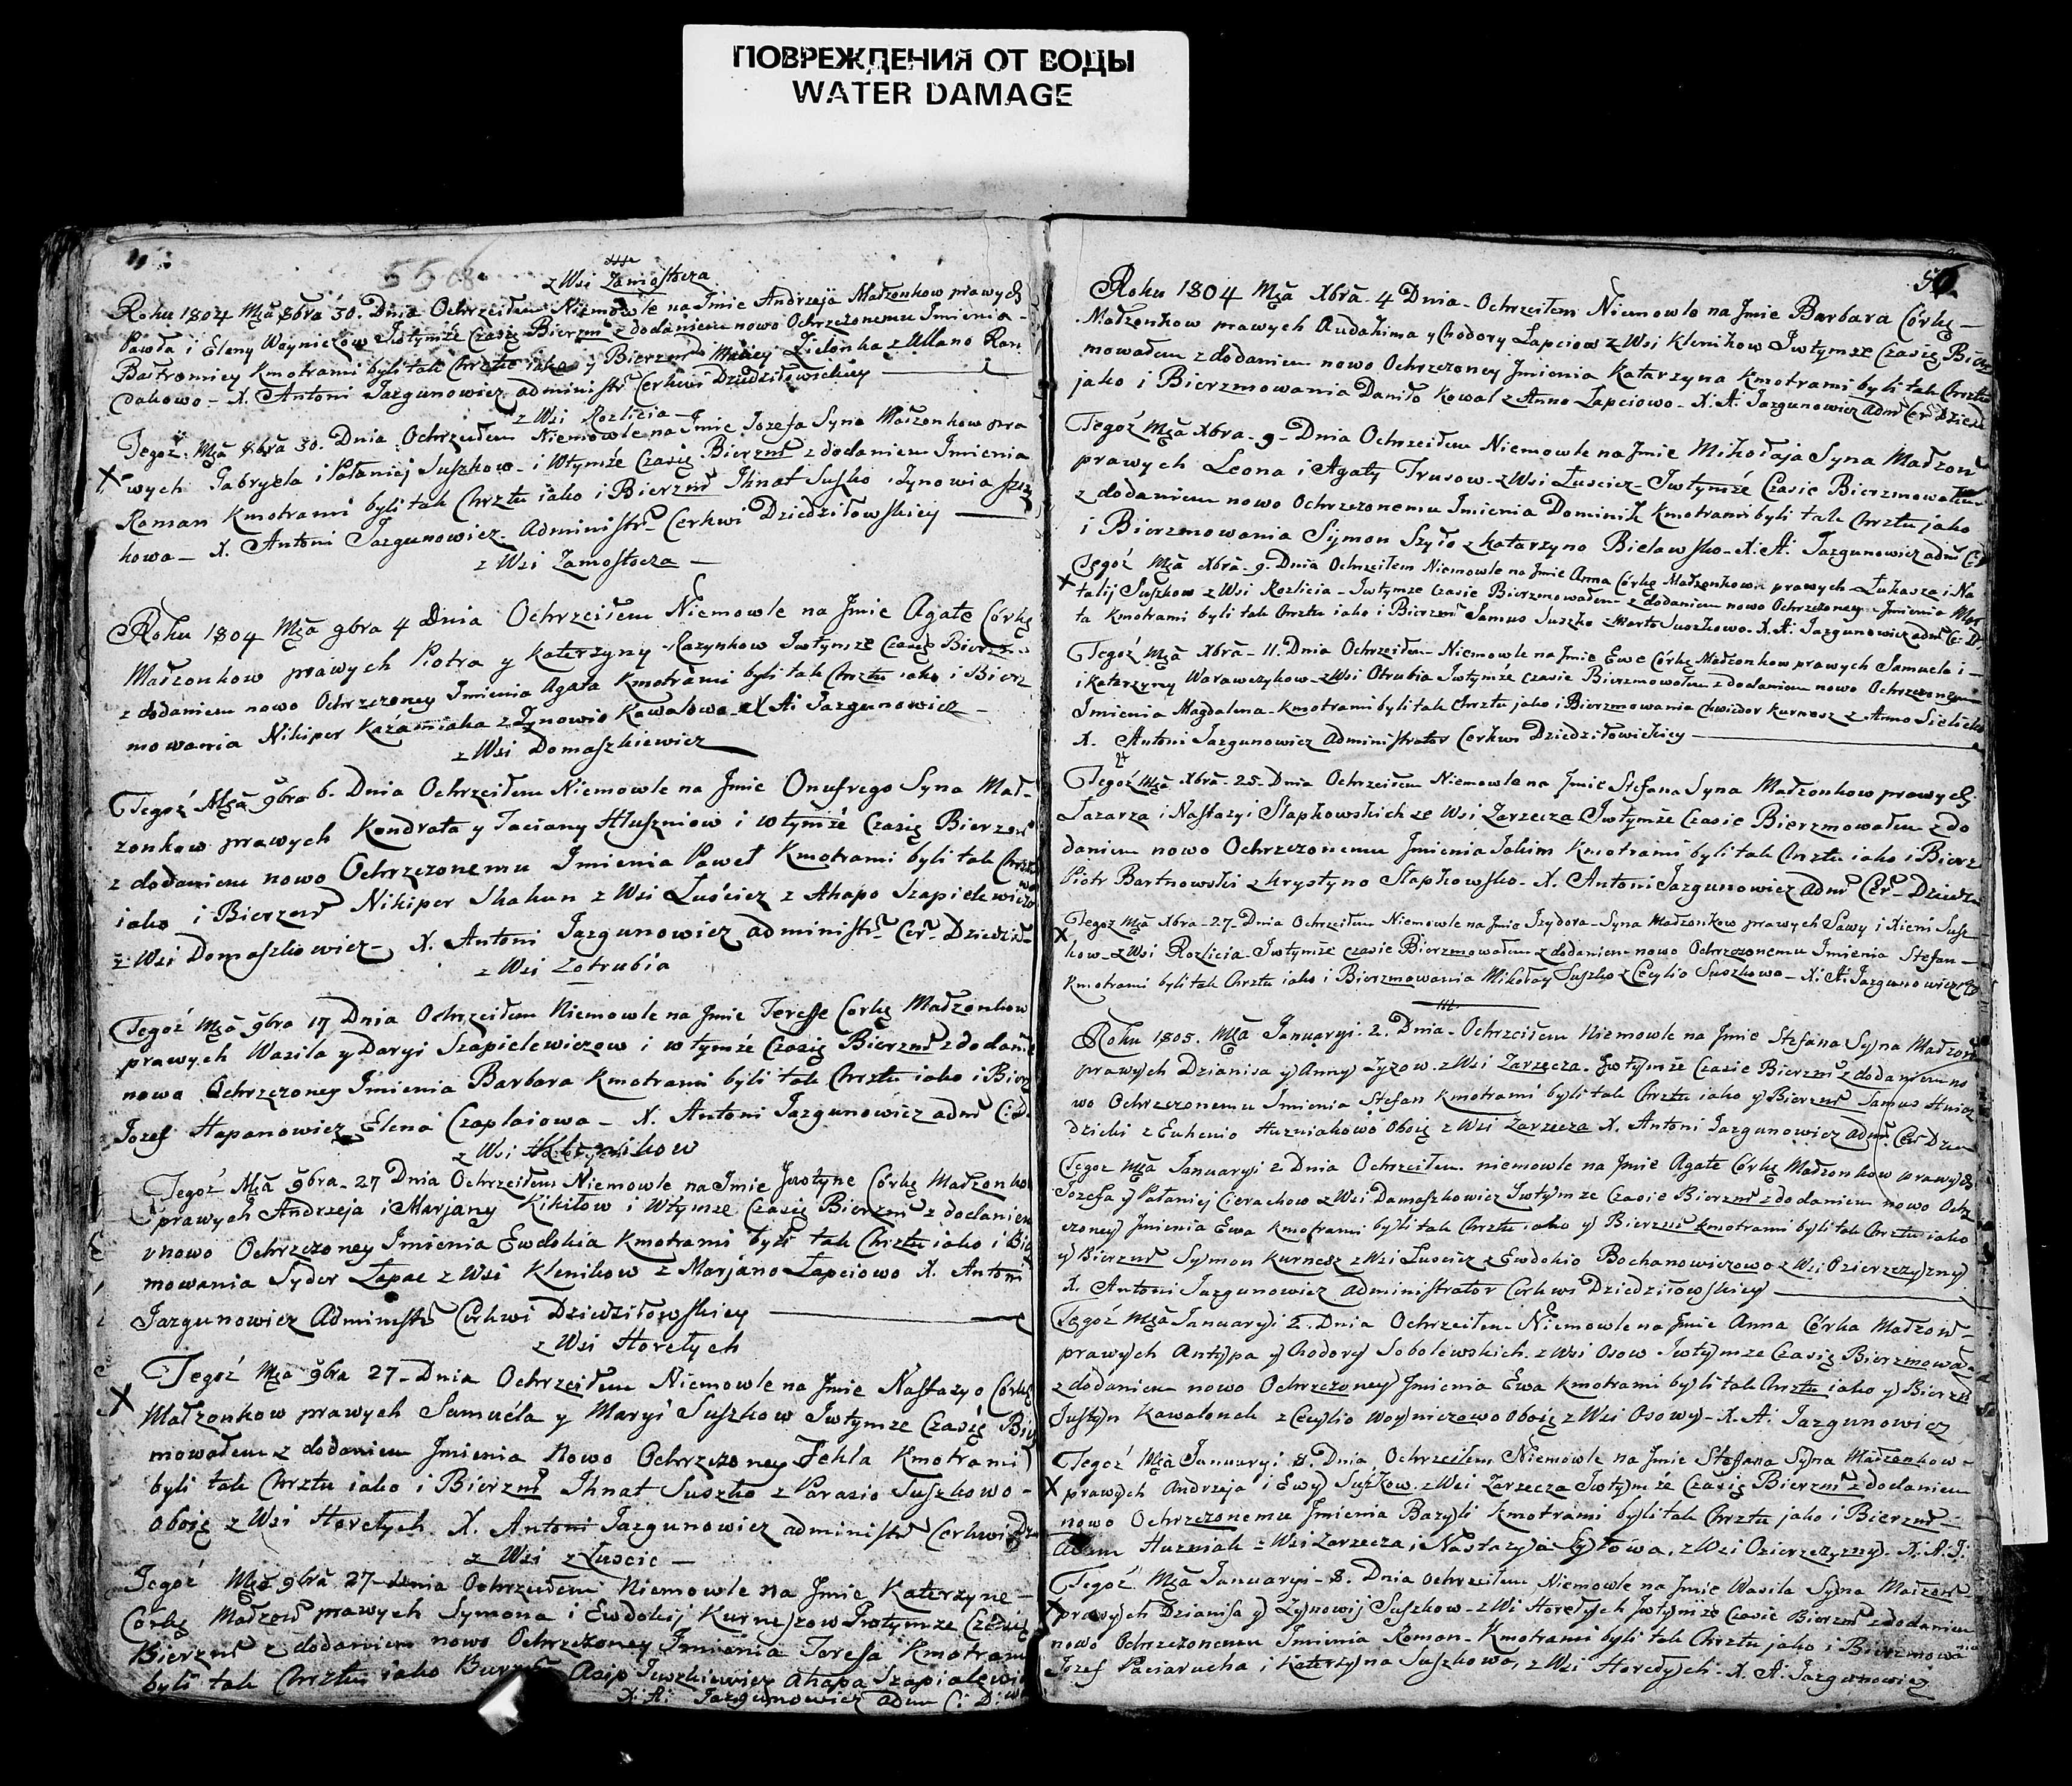 ПОВРЕЖДЕНИЯ ОТ ВОДЫ
WATER DAMAGE
z Wsi Zamostocza
Roku 1804 Mca 8bra 30. Dnia Ochrzciłem Niemowle na Jmie Andrzeja Małżonkow prawych
Pawła i Eleny Woyniczow Jwtymże Czasie Bierzm z dodaniem nowo Ochrzczonemu Jmienia
Bartromiey Kmotrami byli tak Chrztu iako y Bierzm Maciey Zielonka z Ullano Ran
dakowo - X. Antoni Jazgunowicz administr Cerkwi Dziedziłowickiey
z Wsi Rozlicia
Tegoż Mca 8bra 30. Dnia Ochrzciłem Niemowle na Jmie Jozefa Syna Małżonkow pra
wych Gabryela i Połaniej Suszkow i Wtymże Czasie Bierzm z dodaniem Jmienia
Roman Kmotrami byli tak Chrztu iako i Bierzm Jhnat Suszko i Zynowia Susz
kowa - X. Antoni Jazgunowicz Administr Cerkwi Dziedziłowskiey
z Wsi Zamostocza
Roku 1804 Mca 9bra 4 Dnia Ochrzciłem Niemowle na Jmie Agatę Córkę
Małżonkow prawych Piotra y Katerzyny Kazynkow Jwtymże Czasie Bierzm
z dodaniem nowo Ochrzczoney Jmienia Agata Kmotrami byli tak Chrztu iako i Bierz
mowania Nikiper Kaźamiaka z Zynowio Kawalowo X A: Jazgunowicz
z Wsi Domaszkiewicz
Tegoż Mca 9bra 6. Dnia Ochrzciłem Niemowle na Jmie Onufrego Syna Mał-
zonkow prawych Kondrata y Taciany Hłuszniow i wtymże Czasie Bierzm
z dodaniem nowo Ochrzczonemu Jmienia Paweł Kmotrami byli tak Chrztu
iako i Bierzm Nikiper Skakun z Wsi Luścicz z Ahapo Szapielewiczo
z Wsi Domaszkowicz X. Antoni Jazgunowicz administr Cer Dziedził
z Wsi Zotrubia
Tegoż Mca 9bra 17 Dnia Ochrzciłem Niemowle na Jmie Teresse Córkę Małżonkow
prawych Wasila y Daryi Szapielewiczow i wtymże Czasie Bierzm z dodanie
nowo Ochrzczoney Jmienia Barbara Kmotrami byli tak Chrztu iako i Bierz
Jozef Hapanowicz Elena Czaplaiowa - X. Antoni Jazgunowicz adm C: D
z Wsi Klenikow
Tegoż Mca 9bra - 27 Dnia Ochrzciłem Niemowle na Jmie Justyne Córkę Małżonko
prawych Andrzeja i Marjany Kikiłow i Wtymże Czasie Bierzm z dodaniem
nowo Ochrzczoney Jmienia Ewdokia Kmotrami byli tak Chrztu iako i Bie
mowania Syder Łapac z Wsi Klenikow z Marjano Łapciowo X. Antoni
Jazgunowicz Administr Cerkwi Dziedziłowskiey
z Wsi Horełych
Tegoż Mca 9bra 27 - Dnia Ochrzciłem Niemowle na Jmie Nastazyo Córkę
Małżonkow prawych Samuela y Maryi Suszkow Jwtymże Czasie Bie
mowałem z dodaniem Jmienia Nowo Ochrzczoney Tekla Kmotrami
byli tak Chrztu iako i Bierzm Jhnat Suszko z Parasio Suszkowo -
oboię z Wsi Horełych X. Antoni Jazgunowicz administr Cerkwi Dz
z Wsi z Luscic
Tegoż Mca 9bra 27 - Dnia Ochrzciłem Niemowle na Jmie Katerzyne -
Córkę Małżon prawych Symona i Ewdokij Kurneszow Jwtymże Czasie
Bierzm z dodaniem nowo Ochrzczoney Jmienia Teresa Kmotrami
byli tak Chrztu iako Asip Juszkiewicz Ahapa Szapialewi
X. A: Jazgunowicz adm C: D:
Roku 1804 Mca Xbra - 4 Dnia - Ochrzciłem Niemowle na Jmie Barbara Córkę -
Małżonkow prawych Audakima y Chodory Łapciow z Wsi Klenikow Jwtymże Czasie Bierz
mowałem z dodaniem nowo Ochrzczoney Jmienia Katarzyna Kmotrami byli tak Chrztu
jako i Bierzmowania Daniło Kowal z Anno Łapciowo - X. A: Jazgunowicz Adm Cer Dzied
Tegoż Mca Xbra - 9 - Dnia Ochrzciłem Niemowle na Jmie Mikołaja Syna Małżon
prawych Leona i Agaty Trusow z Wsi Luscicz Jwtymże Czasie Bierzmowałem
z dodaniem nowo Ochrzczonemu Jmienia Dominik Kmotrami byli tak Chrztu jako
i Bierzmowania Symon Szyło z Katarzyno Bielawsko - X. A: Jazgunowicz adm C:
Tegoż Mca Xbra - 9. Dnia Ochrzciłem Niemowle na Jmie Anna Córkę Małżonkow prawych Łukasza i Na
talij Suszkow z Wsi Rozlicia - Jwtymże Czasie Bierzmowałem z dodaniem nowo Ochrzczoney Jmienia Mar
ta Kmotrami byli tak Chrztu iako i Bierzm Samus Suszko z Marto Suszkowo - X. A: Jazgunowicz adm C: D:
Tegoż Mca Xbra - 11. Dnia Ochrzciłem Niemowle na Jmie Ewe Córkę Małżonkow prawych Samuela i -
i Katarzyny Warawczykow z Wsi Otrubia Jwtymże Czasie Bierzmowałem z dodaniem nowo Ochrzczoney
Jmienia Magdalena - Kmotrami byli tak Chrztu jako i Bierzmowania Chwiedor Kurnesz z Anno Sielicko
X. Antoni Jazgunowicz Administrator Cerkwi Dziedziłowickiey
Tegoż Mca Xbra - 25 - Dnia Ochrzciłem Niemowle na Jmie Stefana Syna Małżonkow prawych
Łazarza i Nastazyi Słapkowskich ze Wsi Zarzecza Jwtymże Czasie Bierzmowałem z do
daniem nowo Ochrzczonemu Jmienia Jakim Kmotrami byli tak Chrztu iako i Bierz
Piotr Bartnowski z Krystyno Słapkowsko - X. Antoni Jazgunowicz Adm Cer - Dziedz
Tegoz Mca Xbra - 27 - Dnia Ochrzciłem Niemowle na Jmie Jzydora - Syna Małżonkow prawych Sawy i Xieni Susz
kow - z Wsi Rozlicia Jwtymże czasie Bierzmowałem z dodaniem nowo Ochrzczonemu Jmienia Stefan -
Kmotrami byli tak Chrztu iako i Bierzmowania Mikołay Suszko z Cecylio Suszkowo - X: A: Jazgunowicz
Roku 1805. Mca Januaryi. 2. Dnia - Ochrzciłem Niemowle na Jmie Stefana Syna Małżon
prawych Dzianisa y Anny Zyzow z Wsi Zarzecza. Jwtymże Czasie Bierzm z dodaniem no
wo Ochrzczonemu Jmienia Stefan Kmotrami byli tak Chrztu iako y Bierzm Samus Hniez
dzicki z Eukenio Huzniakowo Oboię z Wsi Zarzecza X. Antoni Jazgunowicz adm. Cer Dzie
Tegoz Mca Januaryi 2 Dnia Ochrzciłem niemowle na Jmie Agate Córkę Małżonkow prawych
Jozefa y Pałaniej Cierachow z Wsi Damaszkowicz Jwtymze Czasie Bierzm z dodaniem nowo Ochrz
czoney Jmienia Ewa Kmotrami byli tak Chrztu iako y Bierzm Kmotrami byli tak Chrztu iako
y Bierzm Symon Kurnesz z Wsi Luscicz z Ewdokio Bochanowiczowo z Wsi Ozierzczyzny
X. Antoni Jazgunowicz administrator Cerkwi Dziedziłowskiey
Tegoż Mca Januaryi 2. Dnia Ochrzciłem Niemowle na Jmie Anna Córka Małżon -
prawych Antypa y Chodory Sobolewskich. z Wsi Osow Jwtymze Czasie Bierzmowa
z dodaniem nowo Ochrzczoney Jmienia Ewa Kmotrami byli tak Chrztu iako y Bierzm
Justyn Kawalonek z Cecylio Woyniczowo Oboię z Wsi Osowy - X. A: Jazgunowicz
Tegoż Mca Januaryi. 8. Dnia. Ochrzciłem Niemowle na Jmie Stefana Syna Małżonkow -
prawych Andrzeja i Ewy Suszkow. z Wsi Zarzecza Jwtymże Czasie Bierzm z dodaniem
nowo Ochrzczonemu Jmienia Bazyli Kmotrami byli tak Chrztu jako i Bierzm -
Adam Huzniak z Wsi Zarzecza i Nastazyia Syłowa. z Wsi Ozierzczyzny. X. A. J:
Tegoż Mca Januaryi - 8. Dnia Ochrzciłem Niemowle na Jmie Wasila Syna Małżon -
prawych Dzianisa y Zynowij Suszkow - z Wsi Horełych Jwtymże Czasie Bierzm z dodaniem
nowo Ochrzczonemu Jmienia Roman - Kmotrami byli tak Chrztu jako i Bierzmowa
Jozef Paciarucha i Katerzyna Suszkowa, z Wsi Horełych - X. A. Jazgunowicz